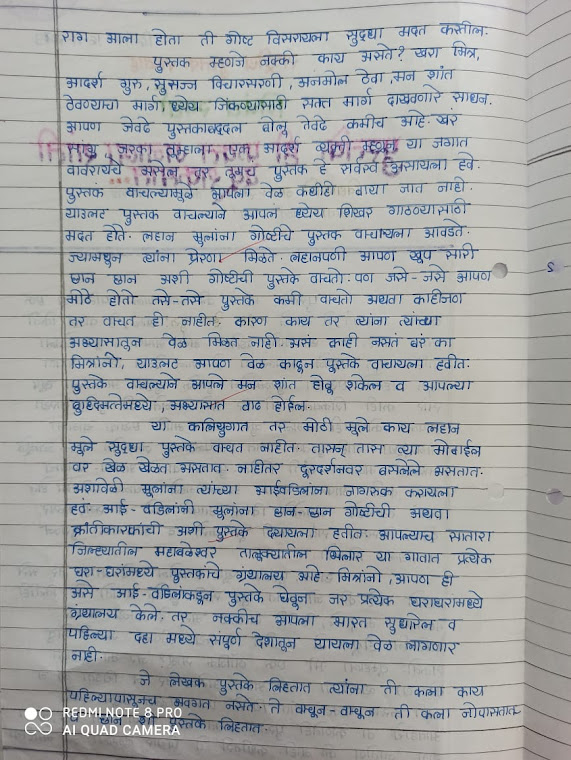 राग आला होता ती गोष्ट विसरायला सुद्धा मदत करतील.
पुस्तक म्हणजे नक्की काय असते? खरा मित्र,
आदर्श गुरु, सुसज्ज विचारसरणी, अनमोल ठेवा, मन शांत
ठेवण्याचा मार्ग ध्येय जिंकण्यासाठी सतत मार्ग दाखवणारे साधन.
आपण जेवढे पुस्तकाबद्दल बोलू तेवढे कमीच आहे. खरं
तुम्हाला एक आदर्श व्यक्ती म्हणून या जगात
वावरायचे असेल तर तुमच पुस्तक हे सर्वस्व असायला हवे.
पुस्तक वाचल्यामुळे आपला वेळ कधीही वाया जात नाही.
याउलट पुस्तक वाचल्याने आपलं ध्येय शिखर गाठण्यासाठी
मदत होते. लहान मुलांना गोष्टीचे पुस्तक वाचायला आवडते.
ज्यामधून त्यांना प्रेरणा मिळते. लहानपणी आपण खूप सारी
छान छान अशी गोष्टींची पुस्तके वाचतो. पण जसे-जसे आपण
मोठे होतो तसे-तसे पुस्तके कमी वाचतो अथवा काहीजण
तर वाचत ही नाहीत. कारण काय तर त्यांना त्यांच्या
अभ्यासातून वेळ मिळत नाही. असं काही नसतं बरं का
मित्रांनो, याउलट आपण वेळ काढून पुस्तके वाचायला हवीत.
पुस्तके वाचल्याने आपले मन शांत होवू शकेल व आपल्या
बुध्दिमत्तेमध्ये, अभ्यासात वाढ होईल.
या कलियुगात तर मोठी मुले काय लहान
मुले सुद्धा पुस्तके वाचत नाहीत. तासन् तास त्या मोबाईल
वर खेळ खेळत असतात. नाहीतर दूरदर्शनवर बसलेले असतात.
अशावेळी मुलांना त्यांच्या आईवडिलांना जागरूक करायला
हवं. आई-वडिलांनी मुलांना छान-छान गोष्टींची अथवा
क्रांतीकारकांची अशी पुस्तके दयायला हवीत. आपल्याच सातारा
जिल्ह्यातील महाबळेश्वर तालुक्यातील भिलार या गावात प्रत्येक
घरा-घरांमध्ये पुस्तकांचे ग्रंथालय आहे. मित्रांनो, आपण ही
असे आई-वडिलांकडून पुस्तके घेवून जर प्रत्येक घराघरामध्ये
ग्रंथालय केले. तर नक्कीच आपला भारत सुधारेल व
पहिल्या दहा मध्ये संपूर्ण देशातून यायला वेळ लागणार
नाही.
जे लेखक पुस्तके लिहतात त्यांना ती कला काय
पहिल्यापासूनच अवगत नसते. ते वाचून-वाचून ती कला जोपासतात
छान पुस्तके लिहतात.
REDMI NOTE 8 PRO
AI QUAD CAMERA